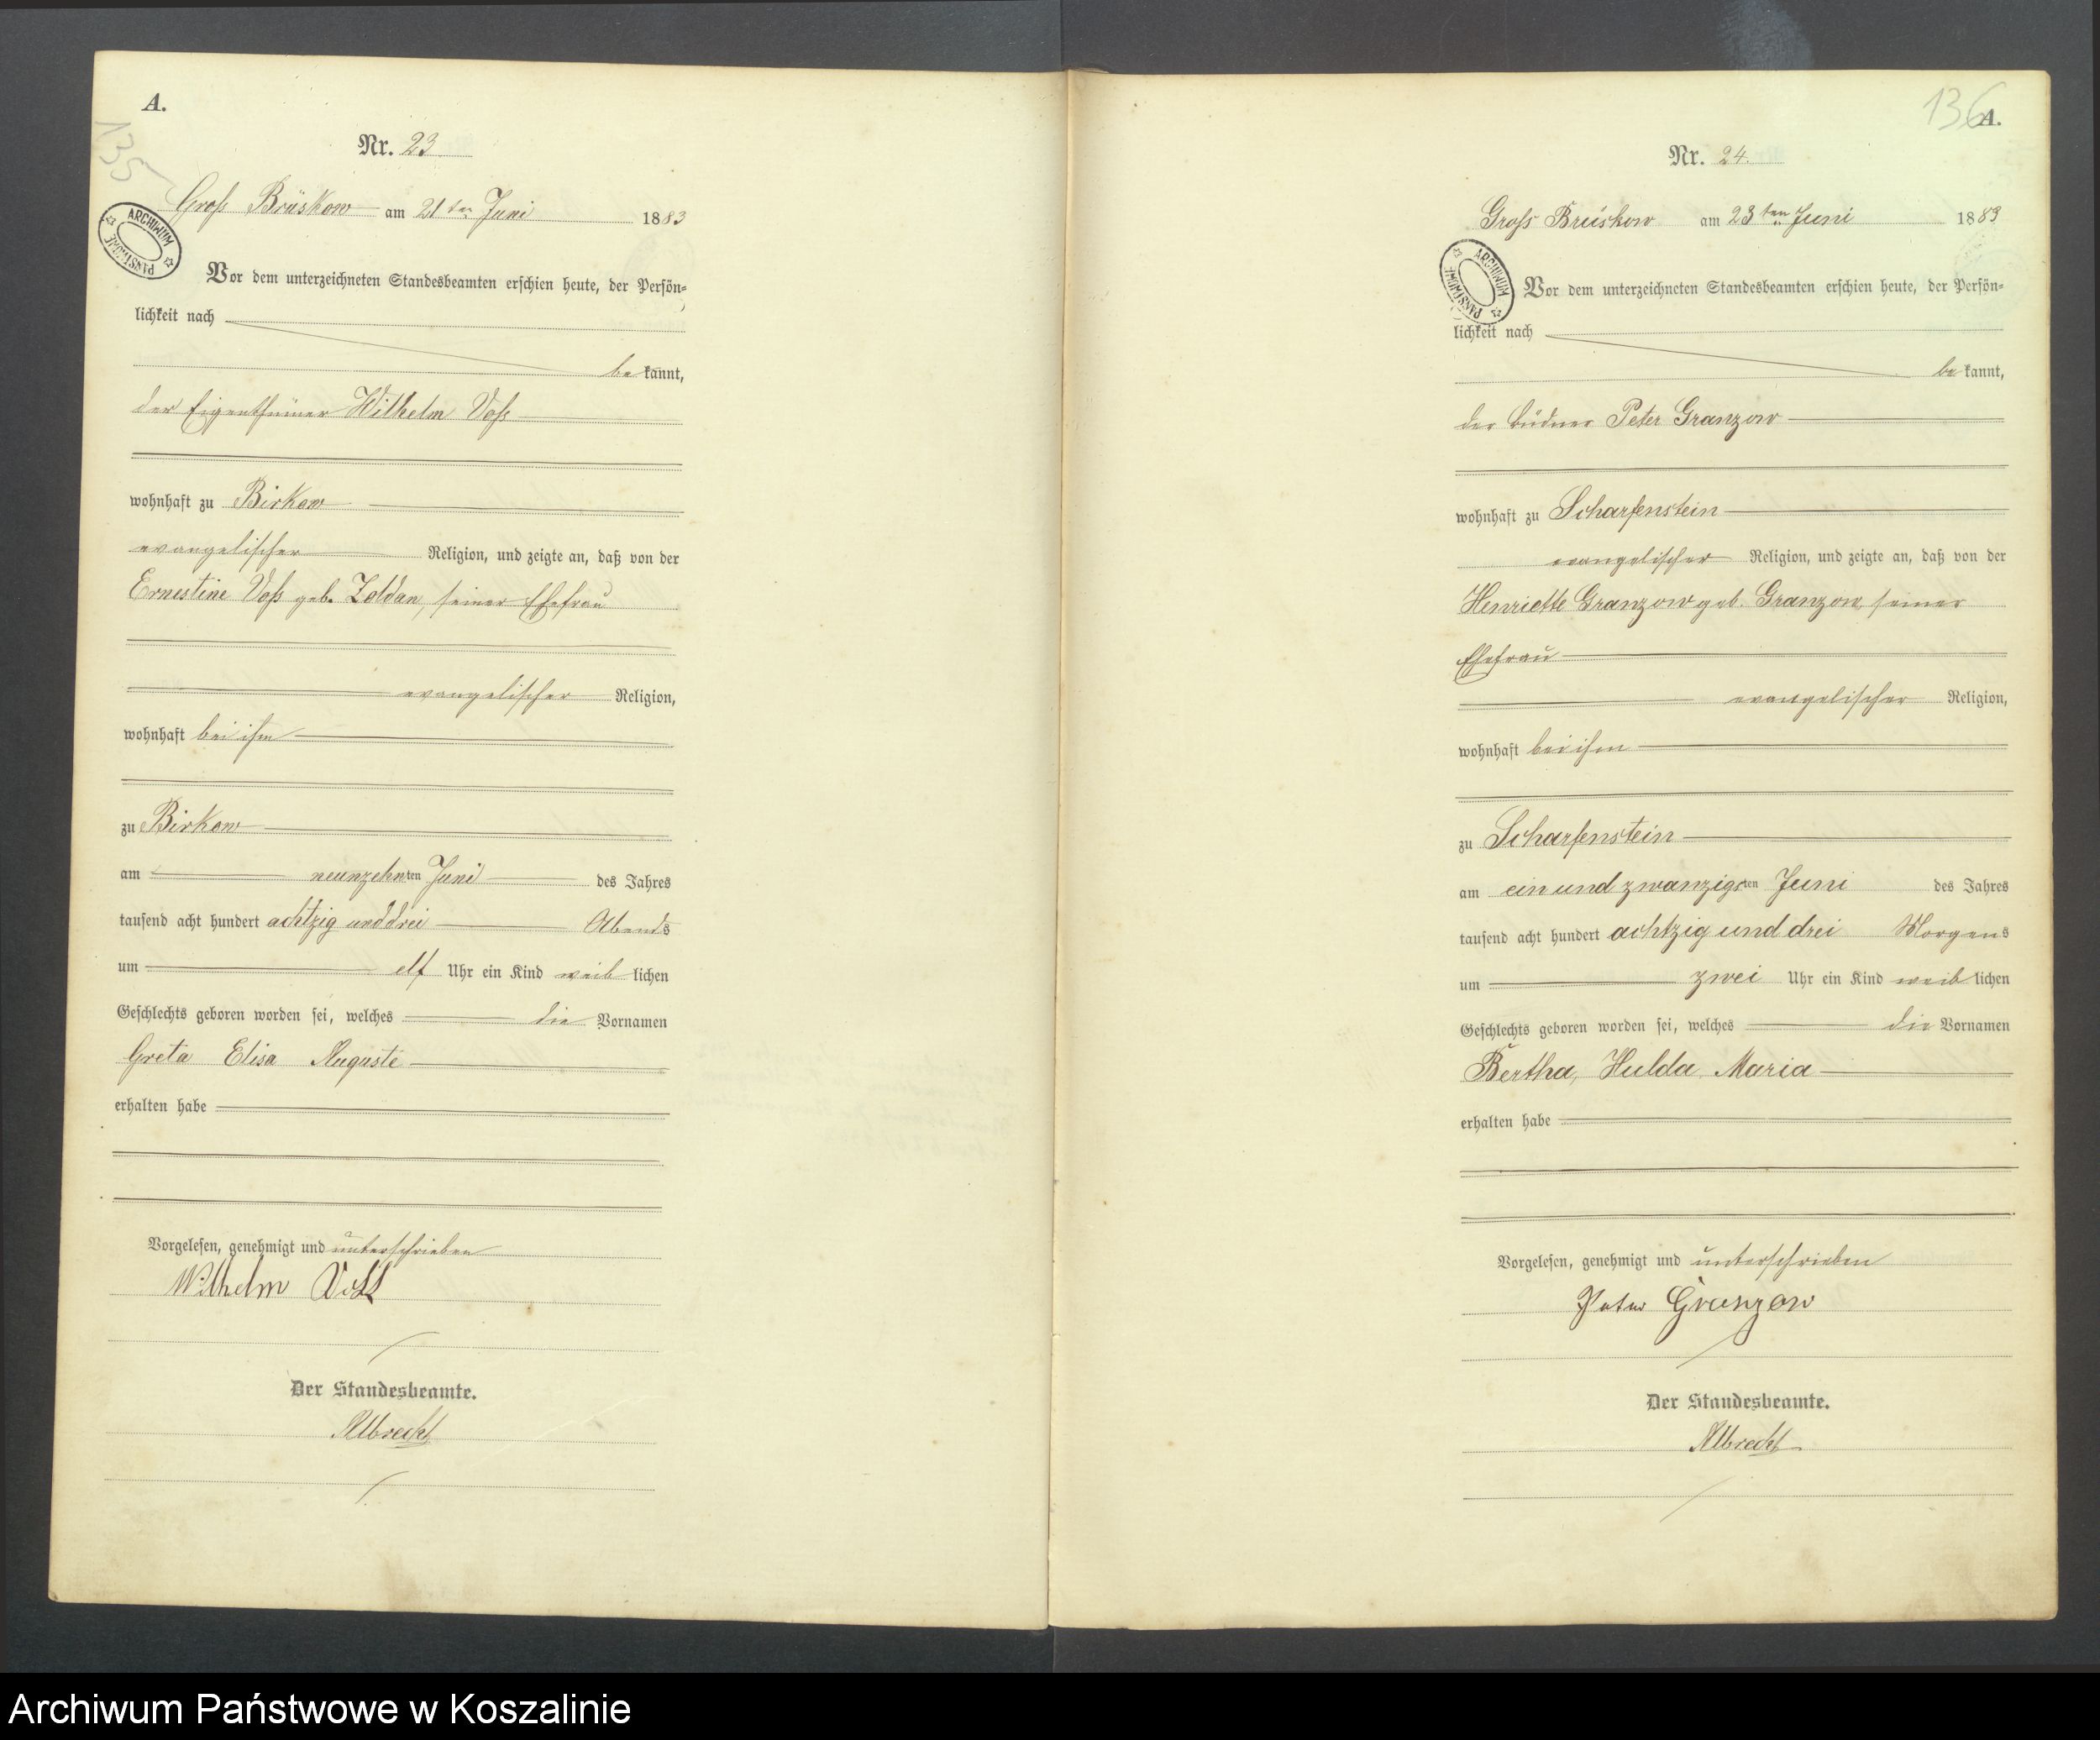 A.
135
Nr. 23
Groß Brüskow am 21ten Juni 1883
ARCHIWUM PAŃSTWOWE
Vor dem unterzeichneten Standesbeamten erschien heute, der Persön=
lichkeit nach
be kannt,
der Eigenthümer Wilhelm Voß
wohnhaft zu Birkow
evangelischer Religion, und zeigte an, daß von der
Ernestine Voß geb. Zoldan, seiner Ehefrau
evangelischer Religion,
wohnhaft bei ihm
zu Birkow
am neunzehnten Juni des Jahres
tausend acht hundert achtzig und drei Abends
um elf Uhr ein Kind weib lichen
Geschlechts geboren worden sei, welches die Vornamen
Greta Elisa Auguste
erhalten habe
Vorgelesen, genehmigt und unterschrieben
Wilhelm Voß
Der Standesbeamte.
Albrecht
136
A.
Nr. 24.
Gross Brüskow am 23ten Juni 1883
ARCHIWUM PAŃSTWOWE
Vor dem unterzeichneten Standesbeamten erschien heute, der Persön=
lichkeit nach
be kannt,
der Büdner Peter Granzow
wohnhaft zu Scharfenstein
evangelischer Religion, und zeigte an, daß von der
Henriette Granzow geb. Granzow, seiner
Ehefrau
evangelischer Religion,
wohnhaft bei ihm
zu Scharfenstein
am ein und zwanzigsten Juni des Jahres
tausend acht hundert achtzig und drei Morgens
um zwei Uhr ein Kind weib lichen
Geschlechts geboren worden sei, welches die Vornamen
Bertha, Hulda, Maria
erhalten habe
Vorgelesen, genehmigt und unterschrieben
Peter Granzow
Der Standesbeamte.
Albrecht
Archiwum Państwowe w Koszalinie